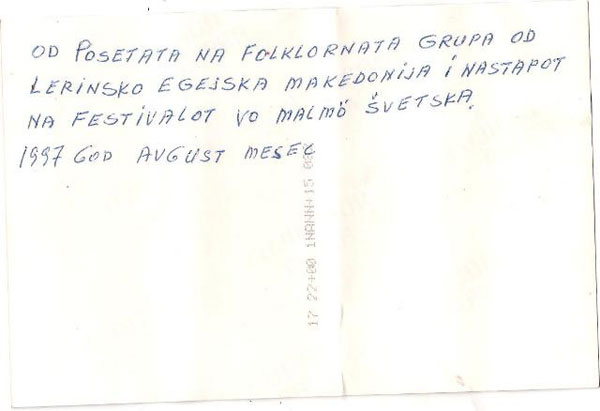 OD POSETATA NA FOLKLORNATA GRUPA OD
LERINSKO EGEJSKA MAKEDONIJA I NASTAPOT
NA FESTIVALOT VO MALMÖ ŠVETSKA.
1997 GOD AVGUST MESEC
17 22+00 1NANN+15 08